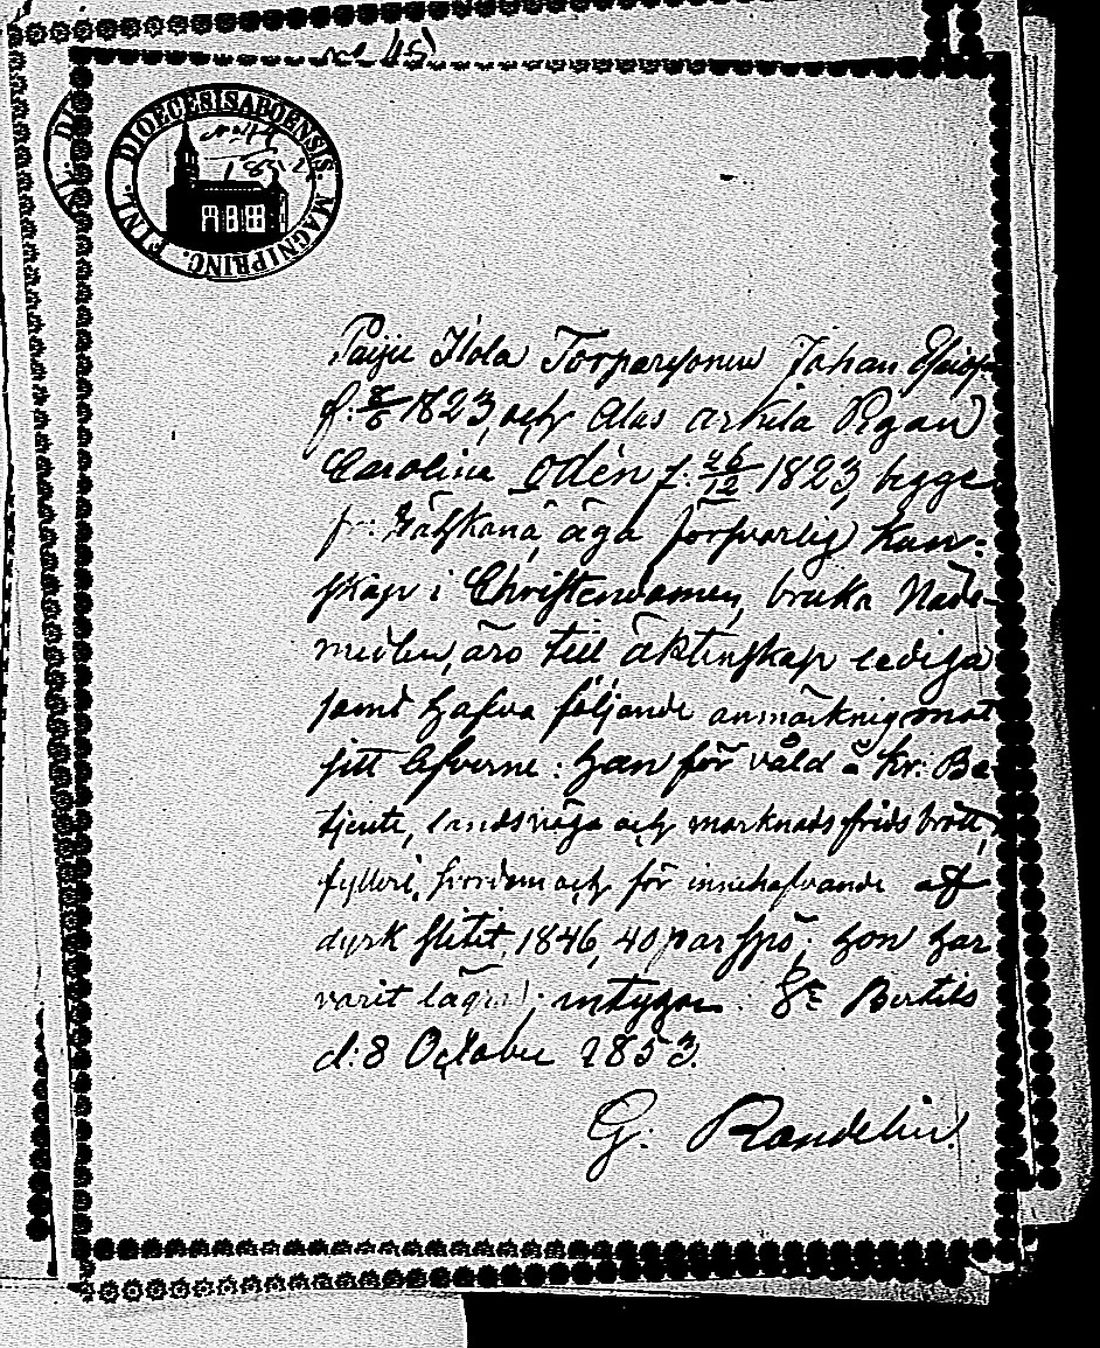 no 45
DIOECESIS ABOENSIS. MAGNI PRINC. FINL.
1852
Paiju Ilola Torparsonen Johan
f. 1823, och Alas arkila Pigan
Carolina Odén f. 26/12 1823, begge
äga försvarlig Kun-
skap i Christendomen, bruka Nåde-
medlen, äro till äktenskap lediga
samt hafva följande anmärkning mot
sitt lefverne: han för våld å Kr: Be-
tjente, landsvägs och marknadsfridsbrott,
fylleri, och för innehafvande af
dyrk slitit 1846, 40 par spö; hon har
varit lägrad; intygar. St Bertils
d: 8 October 1853.
G: Randelin.